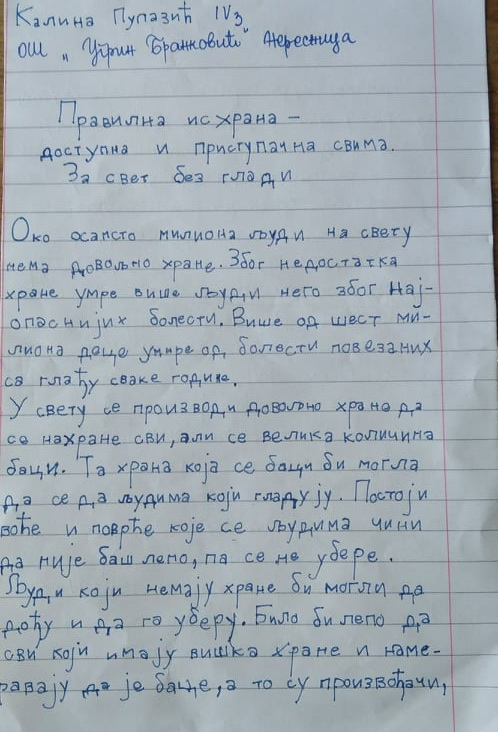 Калина Пупазић IV3
ОШ „Угрин Бранковић" Нересница
Правилна исхрана –
доступна и приступачна свима.
За свет без глади
Око осамсто милиона људи на свету
нема довољно хране. Због недостатка
хране умре више људи него због нај-
опаснијих болести. Више од шест ми-
лиона деце умире од болести повезаних
са глађу сваке године.
У свету се производи довољно хране да
се нахране сви, али се велика количина
баци. Та храна која се баци би могла
да се да људима који гладују. Постоји
воће и поврће које се људима чини
да није баш лепо, па се не убере.
Људи који немају хране би могли да
дођу и да га уберу. Било би лепо да
сви који имају вишка хране и наме-
равају да је баце, а то су произвођачи,